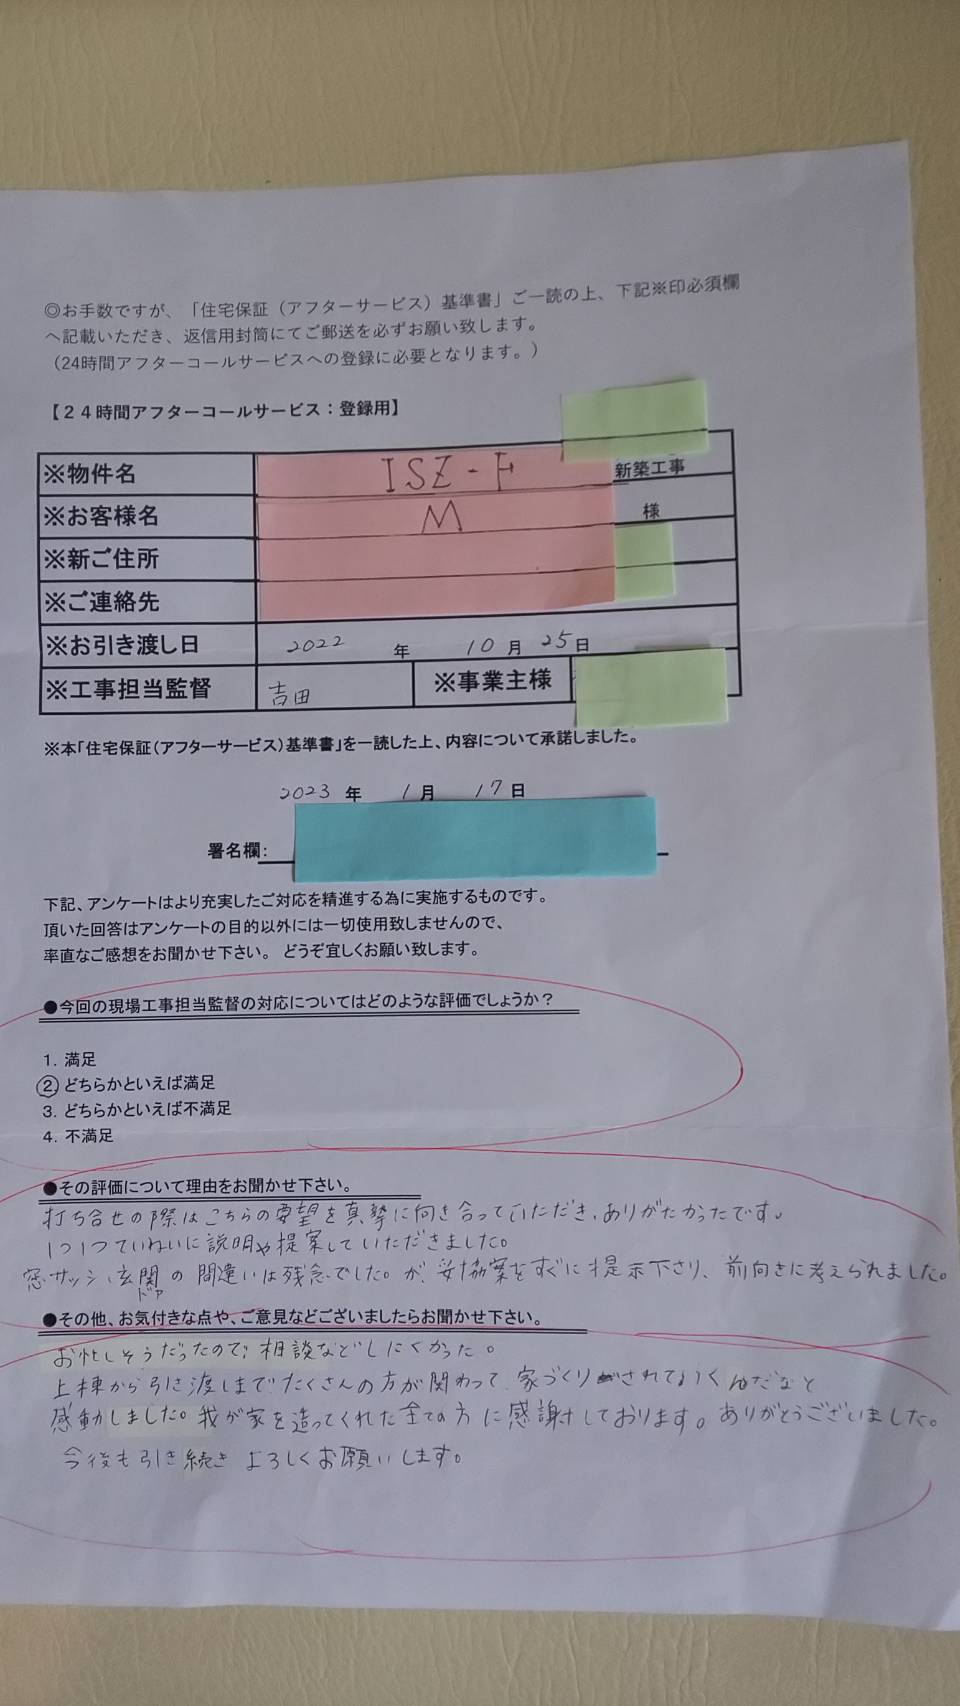 ◎お手数ですが、「住宅保証（アフターサービス）基準書」ご一読の上、下記※印必須欄
へ記載いただき、返信用封筒にてご郵送を必ずお願い致します。
（24時間アフターコールサービスへの登録に必要となります。）
【２４時間アフターコールサービス：登録用】
※物件名 ISZ-F 新築工事
※お客様名 M 様
※新ご住所
※ご連絡先
※お引き渡し日 2022 年 10 月 25 日
※工事担当監督 吉田 ※事業主様
※本「住宅保証（アフターサービス）基準書」を一読した上、内容について承諾しました。
2023 年 1 月 17 日
署名欄：
下記、アンケートはより充実したご対応を精進する為に実施するものです。
頂いた回答はアンケートの目的以外には一切使用致しませんので、
率直なご感想をお聞かせ下さい。 どうぞ宜しくお願い致します。
●今回の現場工事担当監督の対応についてはどのような評価でしょうか？
1. 満足
② どちらかといえば満足
3. どちらかといえば不満足
4. 不満足
●その評価について理由をお聞かせ下さい。
打ち合せの際はこちらの要望を真摯に向き合っていただき、ありがたかったです。
1つ1つていねいに説明や提案していただきました。
窓サッシ、玄関ドアの間違いは残念でした。が、妥協案をすぐに提示下さり、前向きに考えられました。
●その他、お気付きな点や、ご意見などございましたらお聞かせ下さい。
お忙しそうだったので、相談などしにくかった。
上棟から引き渡しまでたくさんの方が関わって、家づくりされていくんだなと
感動しました。我が家を造ってくれた全ての方に感謝しております。ありがとうございました。
今後も引き続きよろしくお願いします。